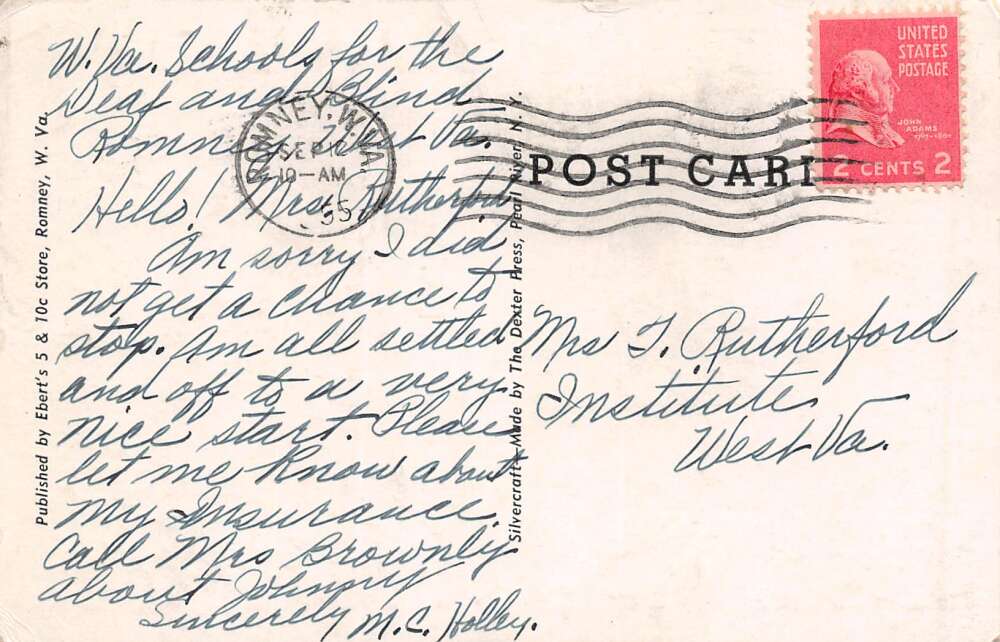 W. Va. Schools for the
Deaf and Blind
Romney, West Va.
Hello! Mrs. Rutherford
Am sorry I did
not get a chance to
stop. Am all settled
and off to a very
nice start. Please
let me know about
my Insurance.
Call Mrs Brownly
about Johnny
Sincerely M.C. Holley.
Published by Ebert's 5 & 10c Store, Romney, W. Va.
Silvercraft—Made by The Dexter Press, Pearl River, N. Y.
ROMNEY, W. VA.
SEP 12
10—AM
55
POST CARD
UNITED
STATES
POSTAGE
JOHN
ADAMS
2 CENTS 2
Mrs T. Rutherford
Institute
West Va.